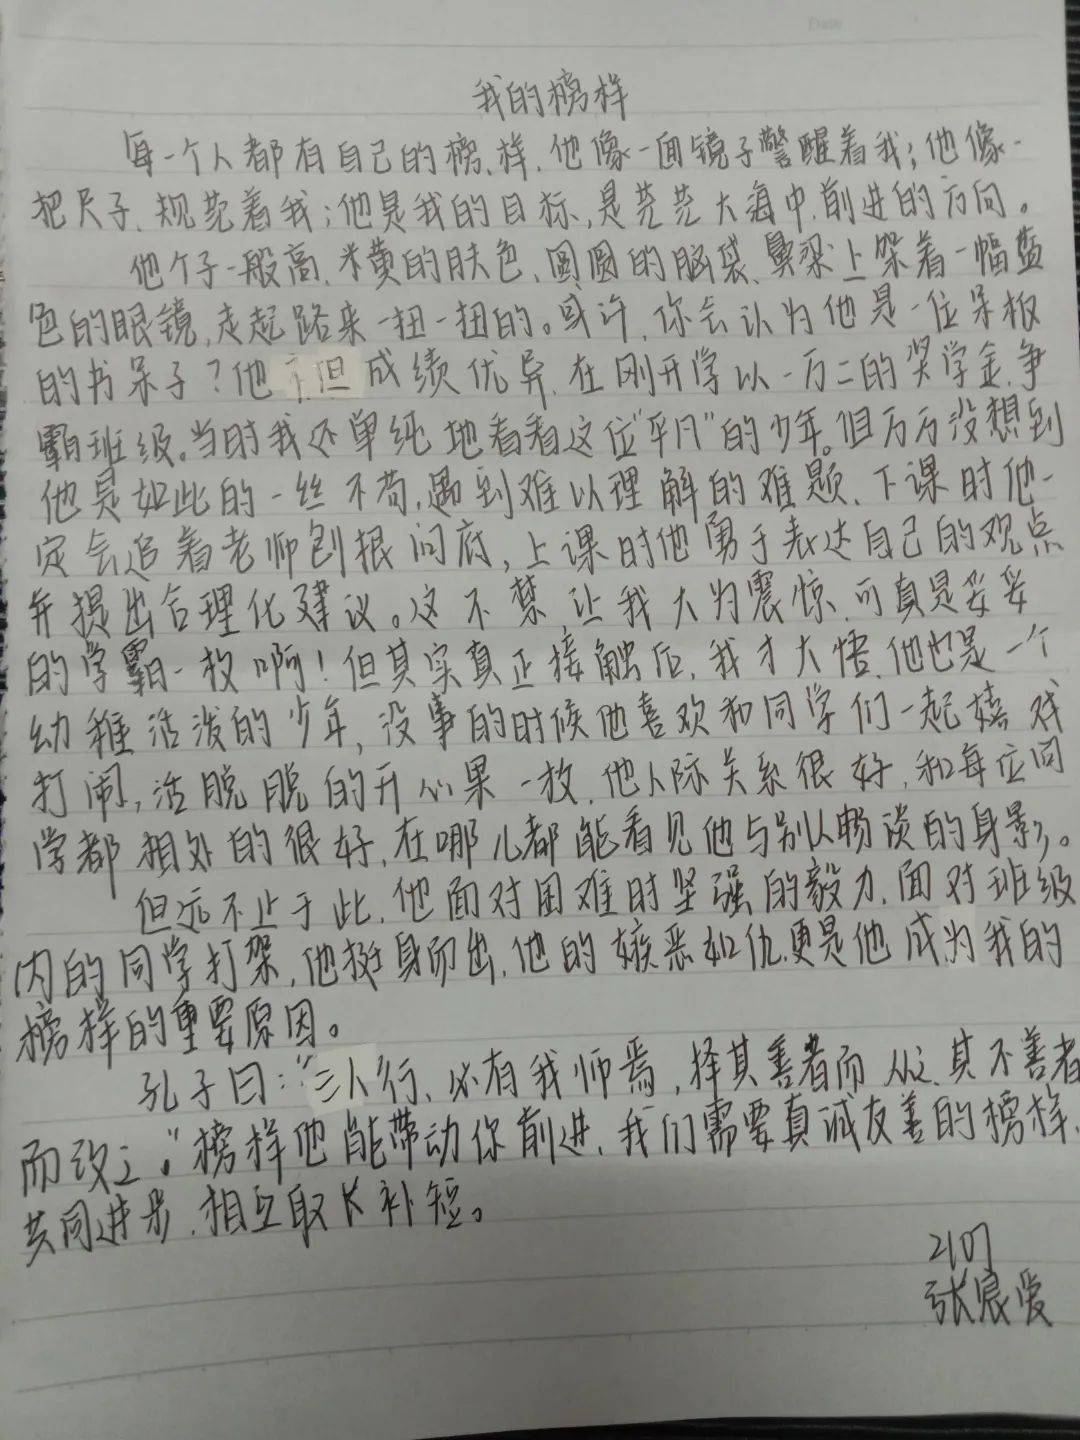 我的榜样
每一个人都有自己的榜样,他像一面镜子警醒着我;他像一
把尺子,规范着我;他是我的目标,是茫茫大海中前进的方向。
他个子一般高,米黄的肤色,圆圆的脑袋,鼻梁上架着一幅蓝
色的眼镜,走起路来一扭一扭的。或许,你会认为他是一位呆板
的书呆子?他不但成绩优异,在刚开学以一万二的奖学金,争
霸班级。当时我还单纯地看着这位“平凡”的少年。但万万没想到
他是如此的一丝不苟,遇到难以理解的难题,下课时他一
定会追着老师刨根问底,上课时他勇于表达自己的观点
并提出合理化建议。这不禁让我大为震惊,可真是妥妥
的学霸一枚啊!但其实真正接触后,我才大悟,他也是一个
幼稚活泼的少年,没事的时候他喜欢和同学们一起嬉戏
打闹,活脱脱的开心果一枚,他人际关系很好,和每位同
学都相处的很好,在哪儿都能看见他与别人畅谈的身影。
但远不止于此,他面对困难时坚强的毅力,面对班级
内的同学打架,他挺身而出,他的嫉恶如仇,更是他成为我的
榜样的重要原因。
孔子曰:“三人行,必有我师焉,择其善者而从之,其不善者
而改之。”榜样他能带动你前进,我们需要真诚友善的榜样,
共同进步,相互取长补短。
2107
张